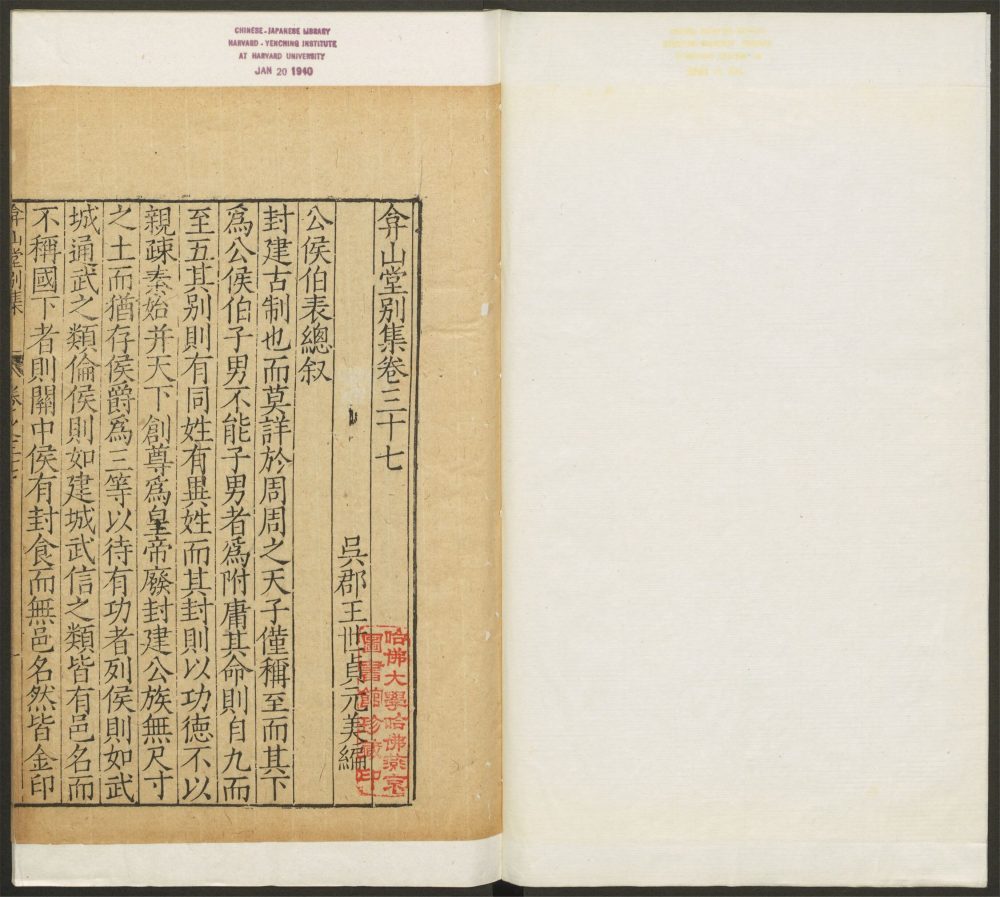 CHINESE-JAPANESE LIBRARY
HARVARD-YENCHING INSTITUTE
AT HARVARD UNIVERSITY
JAN 20 1940
弇山堂别集卷三十七
吳郡王世貞元美編
哈佛大學哈佛燕京
圖書館珍藏印
公侯伯表總叙
封建古制也而莫詳於周周之天子僅稱至而其下
爲公侯伯子男不能子男者爲附庸其命則自九而
至五其别則有同姓有異姓而其封則以功德不以
親疎秦始并天下創尊爲皇帝廢封建公族無尺寸
之土而猶存侯爵爲三等以待有功者列侯則如武
城通武之類倫侯則如建城武信之類皆有邑名而
不稱國下者則關中侯有封食而無邑名然皆金印
弇山堂别集 卷之三十七